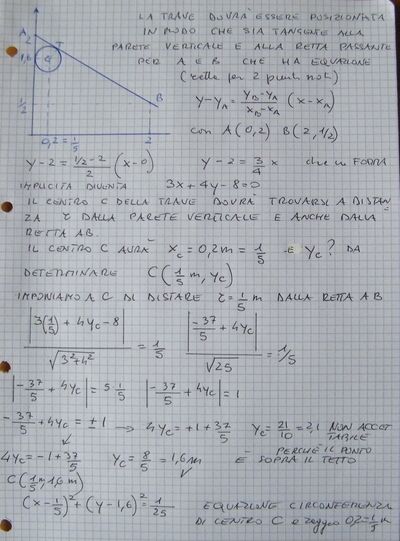 LA TRAVE DOVRÀ ESSERE POSIZIONATA
IN MODO CHE SIA TANGENTE ALLA
PARETE VERTICALE E ALLA RETTA PASSANTE
PER A E B CHE HA EQUAZIONE
(retta per 2 punti noti)
A 2
T
1,6
C
B
1/2
0,2 = 1/5
2
y-y_A = (y_B-y_A)/(x_B-x_A) (x-x_A)
con A(0,2) B(2,1/2)
y-2 = (1/2-2)/2 (x-0) y-2 = 3/4 x che in FORMA
IMPLICITA DIVENTA 3x+4y-8=0
IL CENTRO C DELLA TRAVE DOVRÀ TROVARSI A DISTAN
ZA r DALLA PARETE VERTICALE E ANCHE DALLA
RETTA AB.
IL CENTRO C AVRÀ x_C = 0,2m = 1/5 E y_C? DA
DETERMINARE C(1/5 m, y_C)
IMPONIAMO A C DI DISTARE r = 1/5 m DALLA RETTA AB
|3(1/5) + 4y_C - 8| / √(3²+4²) = 1/5 |-37/5 + 4y_C| / √25 = 1/5
|-37/5 + 4y_C| = 5·1/5 |-37/5 + 4y_C| = 1
-37/5 + 4y_C = ±1 → 4y_C = +1+37/5 y_C = 21/10 = 2,1 NON ACCET
TABILE
PERCHÈ IL PUNTO
È SOPRA IL TETTO
4y_C = -1+37/5 y_C = 8/5 = 1,6m
C(1/5 m, 1,6m)
(x-1/5)² + (y-1,6)² = 1/25 EQUAZIONE CIRCONFERENZA
DI CENTRO C e raggio 0,2=1/5 m